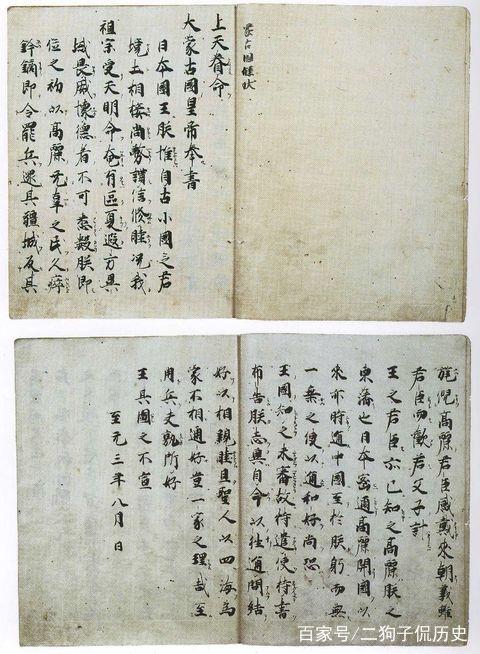 蒙古国牒状
上天眷命
大蒙古國皇帝奉書
日本國王朕惟自古小國之君
境土相接尚務講信修睦況我
祖宗受天明命奄有區夏遐方異
域畏威懷德者不可悉數朕即
位之初以高麗无辜之民久瘁
鋒鏑即令罷兵還其疆域反其
旄倪高麗君臣感戴來朝義雖
君臣而歡若父子計
王之君臣亦已知之高麗朕之
東藩也日本密邇高麗開國以
來亦時通中國至於朕躬而無
一乘之使以通和好尚恐
王國知之未審故特遣使持書
布告朕志冀自今以往通問結
好以相親睦且聖人以四海為
家不相通好豈一家之理哉至
用兵夫孰所好
王其圖之不宣
至元三年八月 日
百家号/二狗子侃历史